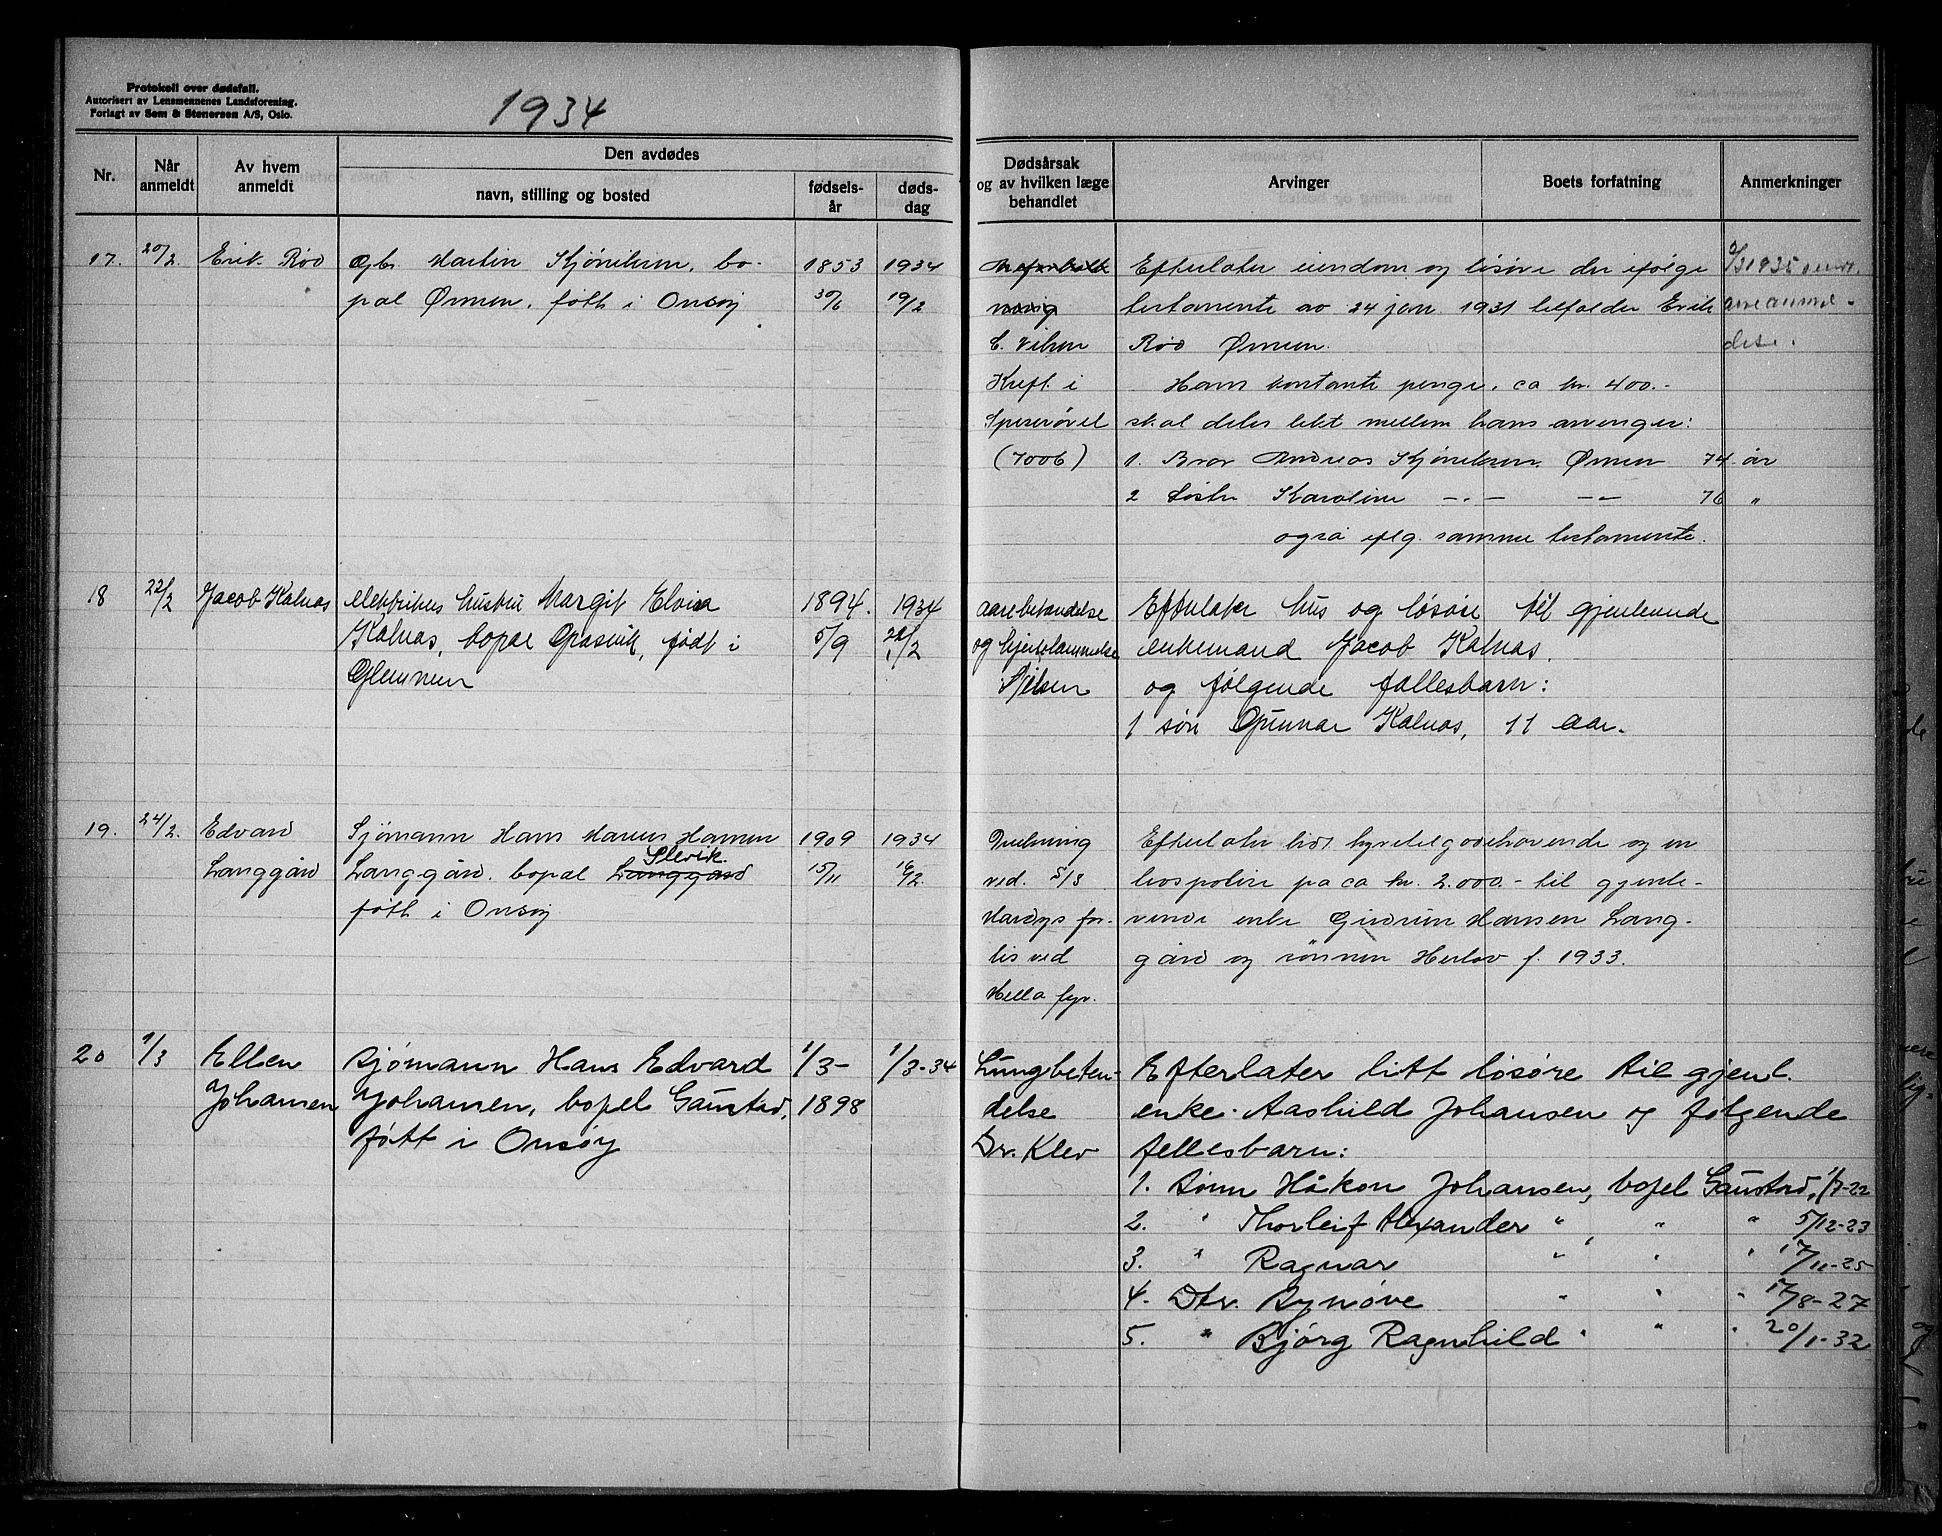 Protokoll over dødsfall.
Autorisert av Lensmennenes Landsforening.
Forlagt av Sem & Stenersen A/S, Oslo.
1934
Nr.
Når anmeldt
Av hvem anmeldt
Den avdødes
navn, stilling og bosted
fødsels-år
døds-dag
Dødsårsak og av hvilken læge behandlet
Arvinger
Boets forfatning
Anmerkninger
17. 20/2. Erik Rød
Martin bo-
pæl Ørmen, født i Onsøy
1853
30/6
1934
19/2
C. Nilsen
Kreft i
Spiserøret
(7006)
Efterlater eiendom og løsøre der ifølge
testamente av 24 jan. 1931 tilfalder Erik
Rød Ørmen.
Hans kontante penge, ca kr. 400.-
skal deles likt mellem hans arvinger:
1. Bror Andreas Ørmen 74 år
2 Søster Karoline -.- -- 76 "
også iflg. samme testamente.
18 22/2 Jacob Kalnas
elektrikers hustru Margit
Kalnas, bopæl født i
Glemmen
1894.
5/9
1934
/2
aarebetendelse
og hjertelammelse
Efterlater hus og løsøre til gjenlevende
enkemand Jacob Kalnas.
og følgende fællesbarn:
1 søn Gunnar Kalnas, 11 aar.
19. 24/2. Edvard
Langgård
Sjømann Hans Marius Hansen
Slevik.
Langgård. bopæl Langgård
født i Onsøy
1909
15/11
1934
16/2.
Drukning
ved S/S
for-
lis ved
Hella fyr.
Efterlater litt hyretilgodehavende og en
på ca kr. 2.000.- til gjenle-
vende enke Gudrun Hansen Lang-
gård og sønnen Herlov f. 1933.
20 1/3 Ellen
Johansen
Sjømann Hans Edvard
Johansen, bopel Gaustad,
født i Onsøy
1/3-
1898
1/3-34
Lungebeten-
delse
Dr. Klev
Efterlater litt løsøre til gjenl.
enke. Aashild Johansen og følgende
fellesbarn:
1. Sønn Håkon Johansen, bopel Gaustad, 1/7-22
2. " Thorleif Alexander " " " 5/12-23
3. " Ragnar " " " 17/11-25
4. Dtr. Synøve " " " 17/8-27
5. " Bjørg Ragnhild " " " 20/1-32